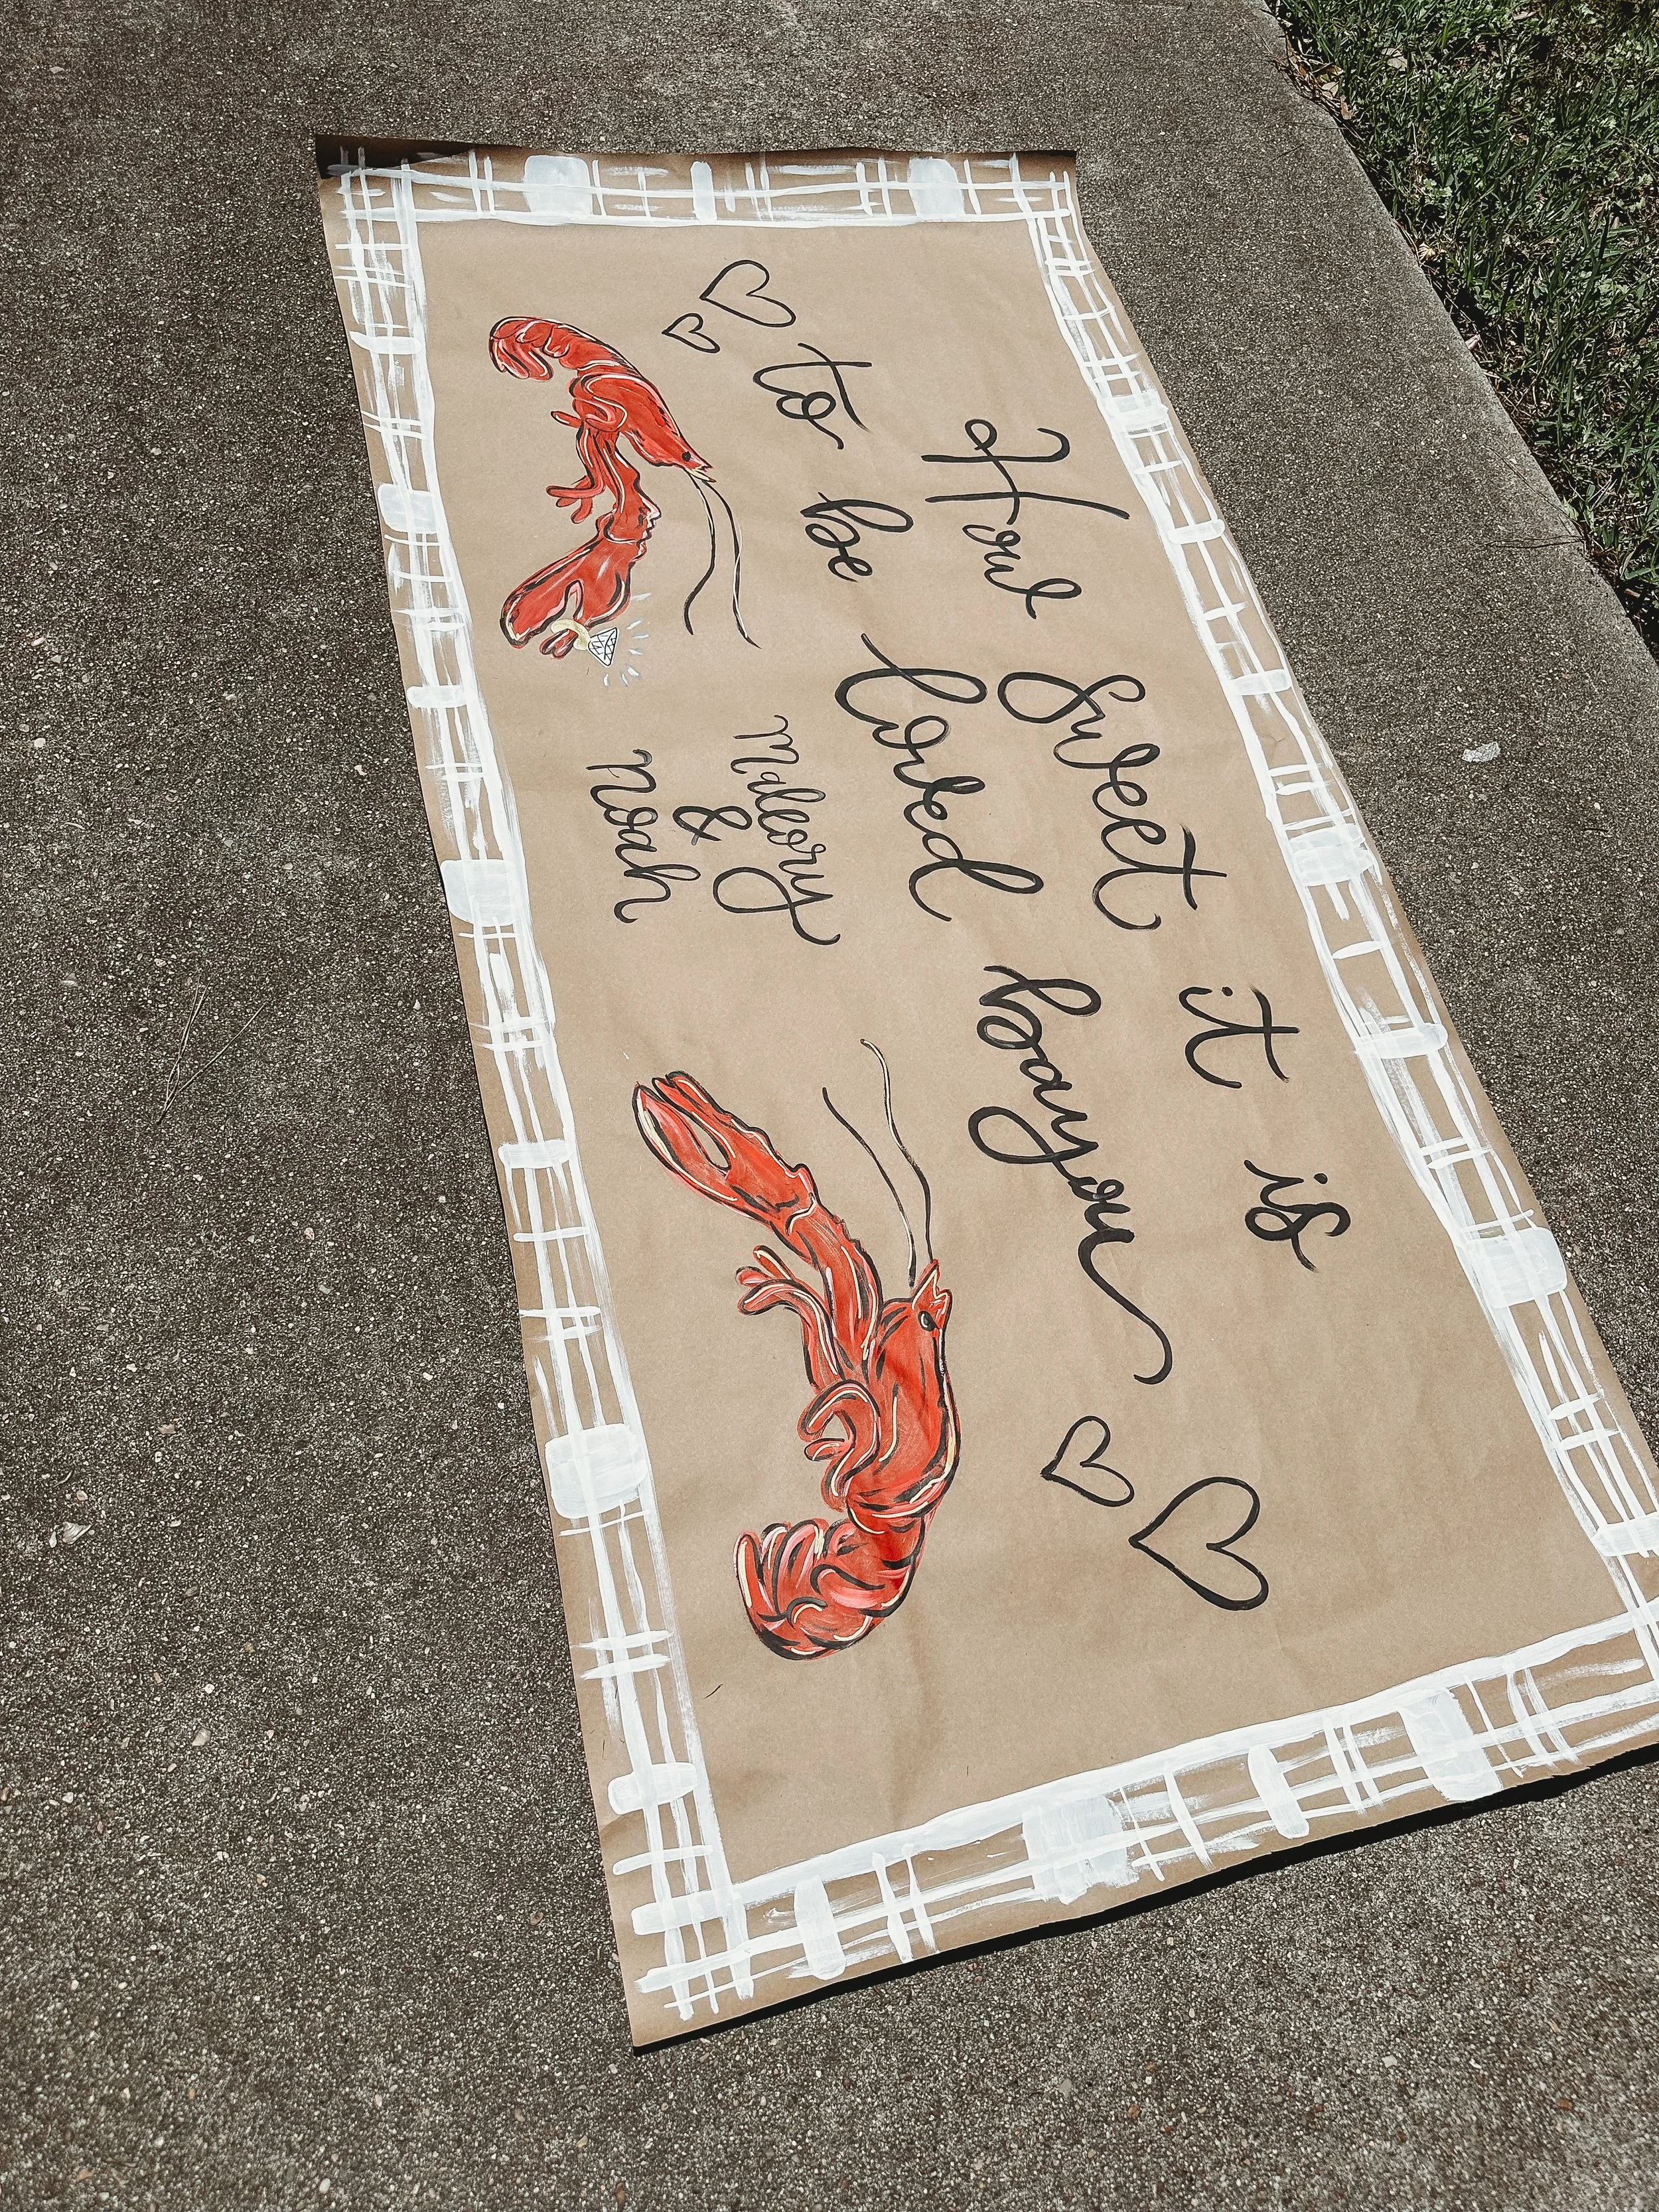 How Sweet it is
to be loved bayou
Mallory
&
Noah